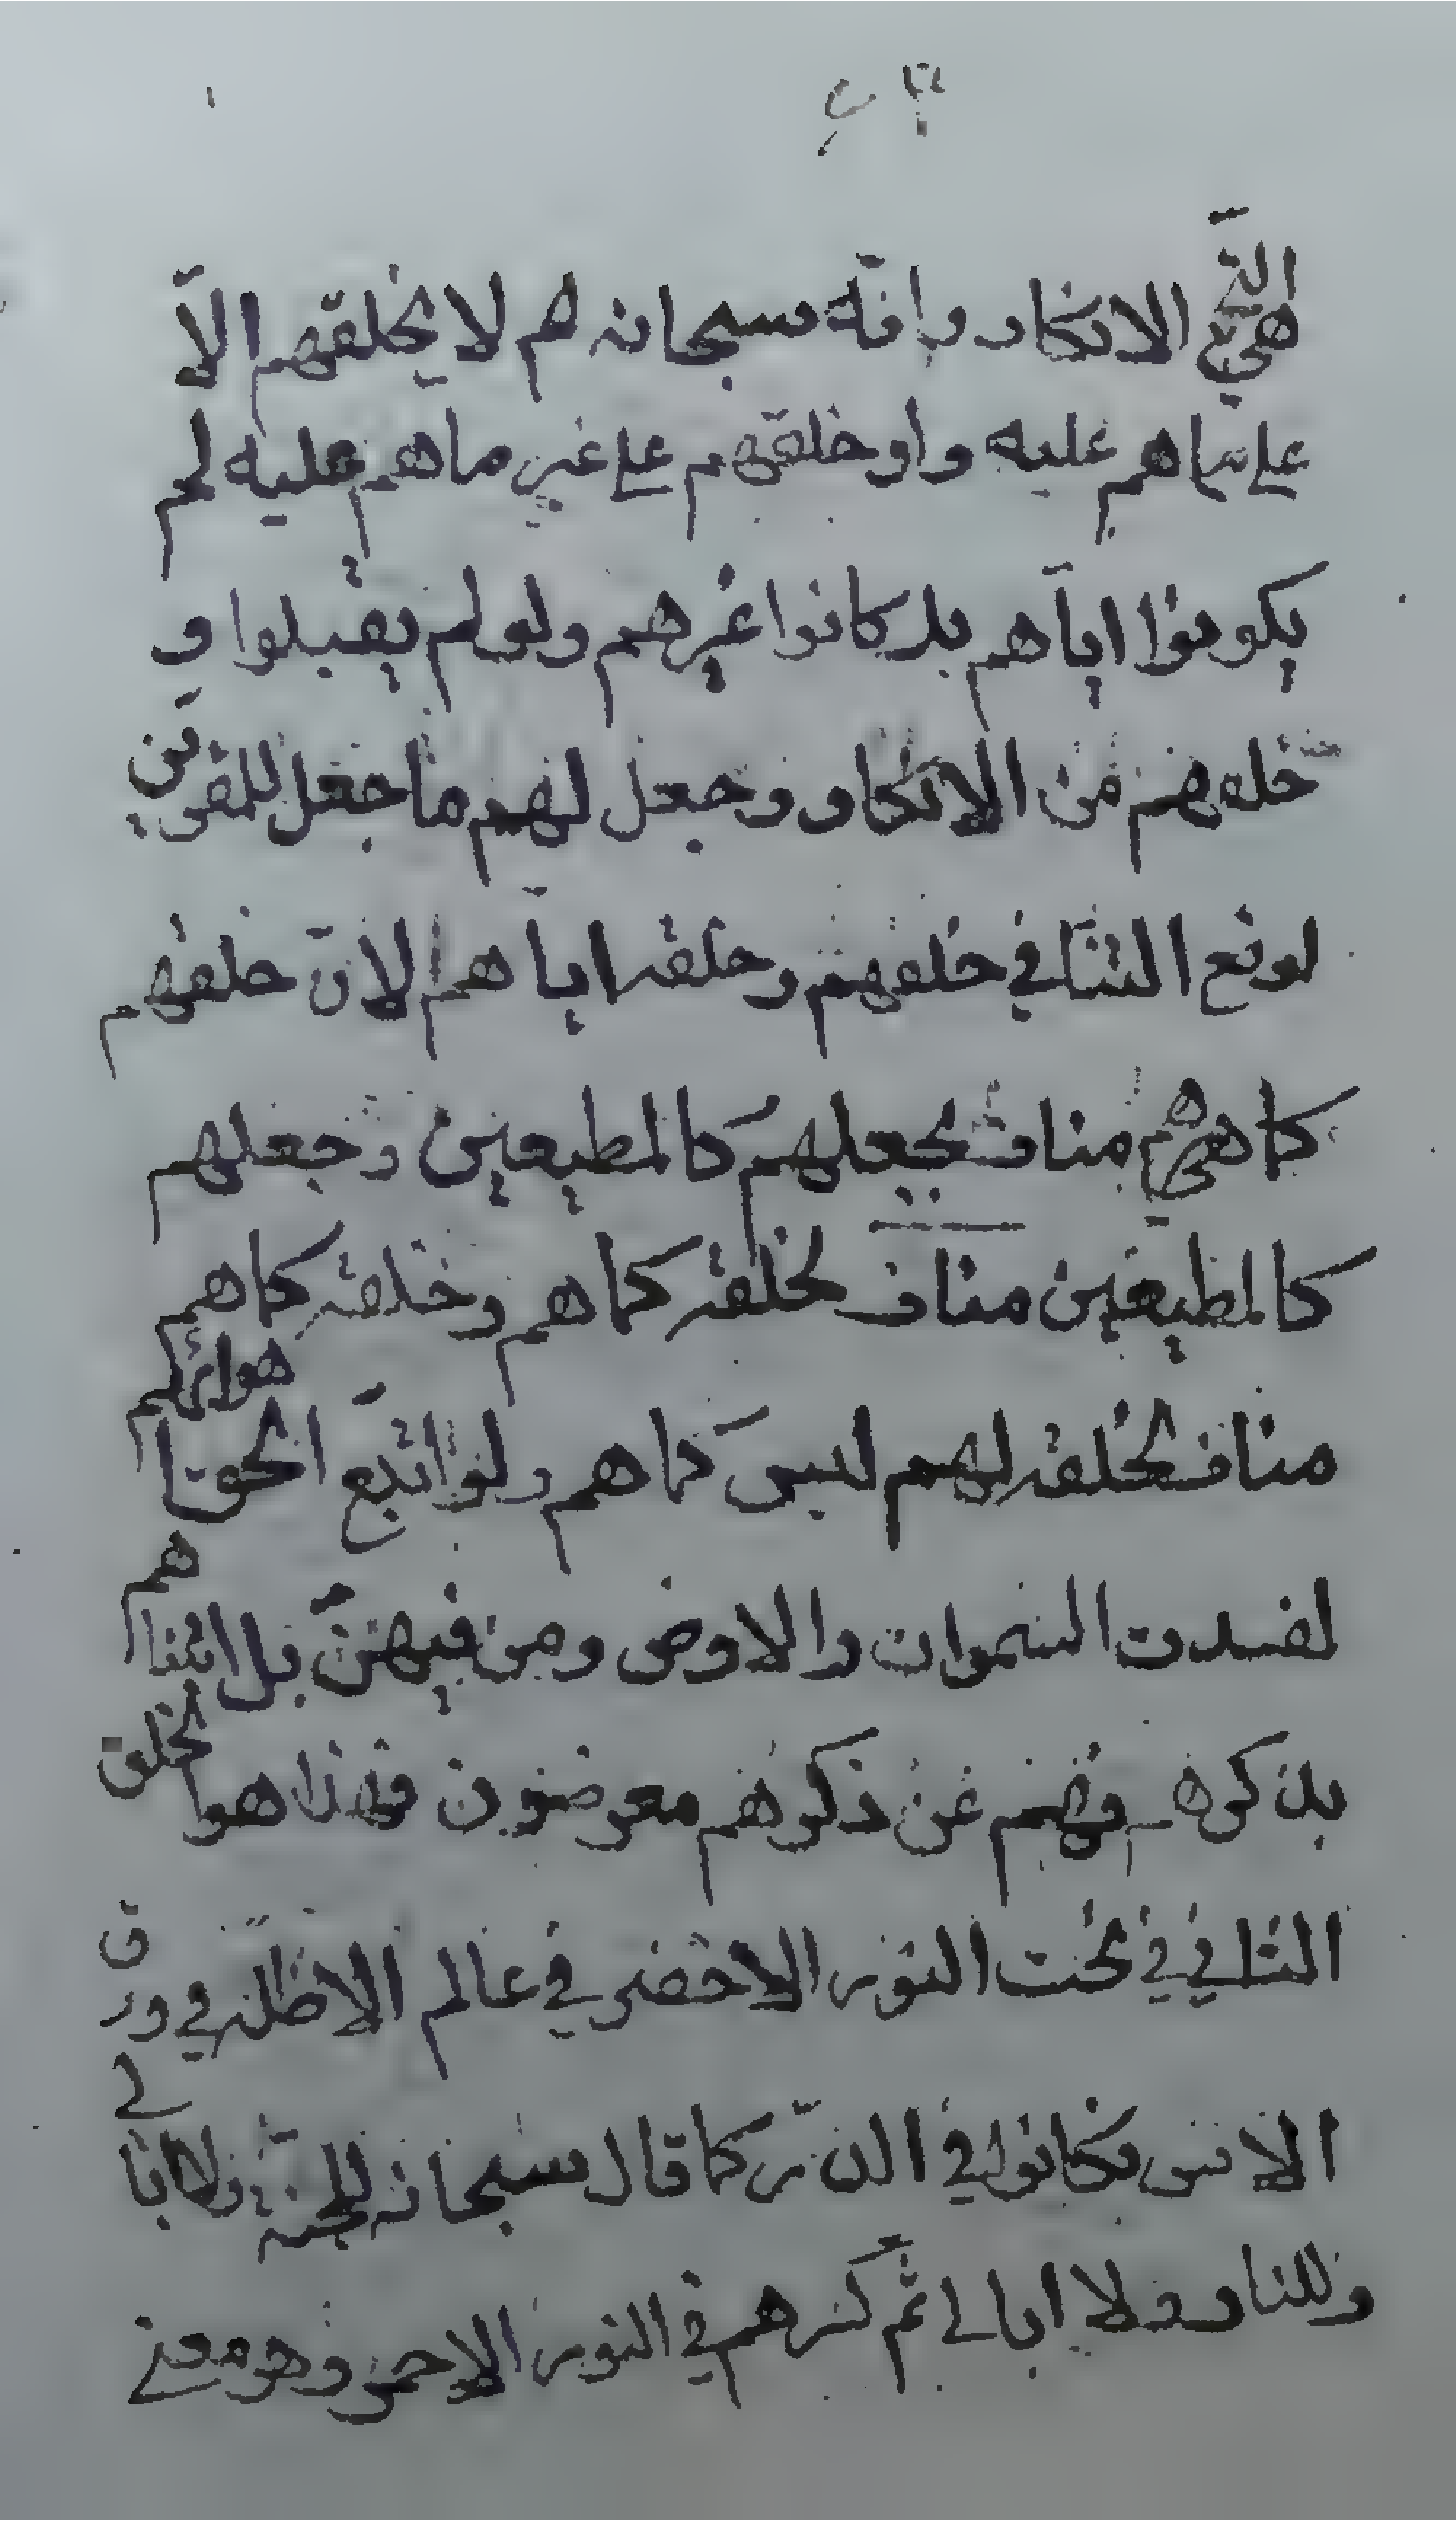 التي هي الانكار وانّه سبحانه لم لا يخلقهم الاّ
على ما هم عليه ولو خلقهم على غير ما هم عليه لم
يكونوا اياهم بل كانوا غيرهم ولو لم يقبلوا و
خلقهم من الانكار وجعل لهم ما جعل للمقرّين
لوقع التنافي في خلقهم وخلقه اياهم لانّ خلقهم
كما هم مناف لجعلهم كالمطيعين وجعلهم
كالمطيعين مناف لخلقه كما هم وخلقه كما هم
مناف لخلقه لهم ليس كما هم ولو اتبع الحق اهوائهم
لفسدت السموات والارض ومن فيهنّ بل اتيناهم
بذكرهم فهم عن ذكرهم معرضون فهذا هو الخلق
الثاني في تحت النور الاخضر في عالم الاظلة في ورق
الاس فكانوا في الذرّ كما قال سبحانه للجنّة ولا ابالي
وللنار ولا ابالي ثم كسرهم في النور الاحمر وهو معنى